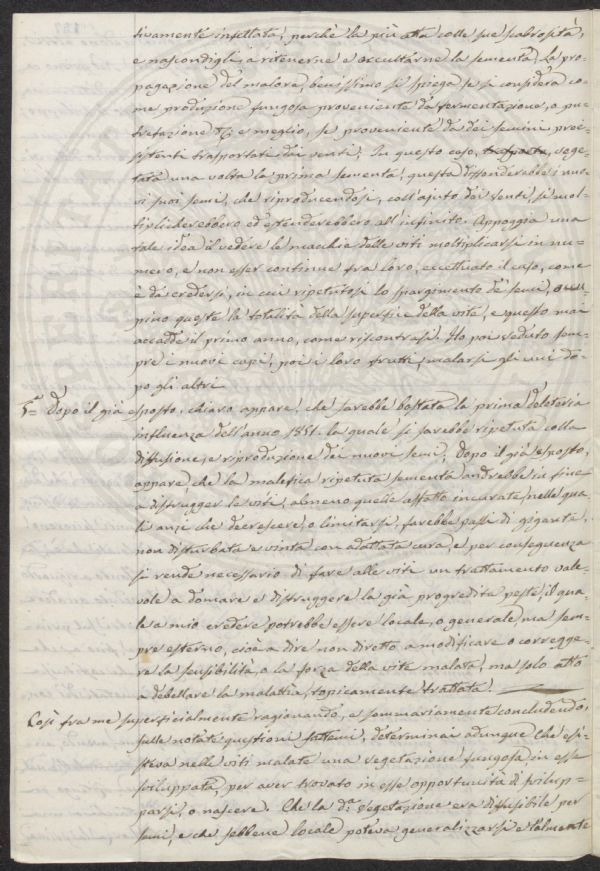 tivamente infettata, perchè la più atta colle sue scabrosità,
e nascondigli a ritenerne e occultarne la sementa. La pro-
pagazione del malore, benissimo si spiega se si considera co-
me produzione fungosa proveniente da fermentazione, o pu-
trefazione e meglio, se proveniente da dei semini pree-
sistenti trasportati dai venti. In questo caso, vege-
tata una volta la prima sementa, questa diffonderebbe i nuo-
vi suoi semi, che riproducendosi, coll'ajuto dei venti, si mol-
tiplicherebbero ed estenderebbero all'infinito. Appoggia una
tale idea il vedere le macchie delle viti moltiplicarsi in nu-
mero, e non esser continue fra loro, eccettuato il caso, come
è da credersi, in cui ripetutosi lo spargimento de' semi, occu-
pino queste la totalità della superficie della vite, e questo mai
accadde il primo anno, come riscontrasi. Ho poi veduto sem-
pre i nuovi capi, poi i loro frutti, malarsi gli uni do-
po gli altri
5.a Dopo il già esposto, chiaro appare, che sarebbe bastata la prima deleteria
influenza dell'anno 1851. la quale si sarebbe ripetuta colla
diffusione, e riproduzione dei nuovi semi. Dopo il già esposto,
appare, che la malefica ripetuta sementa andrebbe in fine
a distrugger le viti, almeno quelle affatto incurate, nelle qua-
li anzi che decrescere, o limitarsi, farebbe passi di gigante,
non disturbata e vinta con adattata cura, e per conseguenza
si rende necessario di fare alle viti un trattamento vale-
vole a domare e distruggere la già progredita peste, il qua-
le a mio credere potrebbe essere locale, o generale, ma sem-
pre esterno, cioè a dire non diretto a modificare o corregge-
re la sensibilità, o la forza della vite malata, ma solo atto
a debellare la malattia, topicamente trattata.
Così fra me superficialmente ragionando, e sommariamente concludendo,
sulle notate questioni determinai adunque che esi-
steva nelle viti malate una vegetazione fungosa, in esse
sviluppata, per aver trovato in esse opportunità di svilup-
parsi, o nascere. Che la d.a vegetazione era diffusibile per
semi, e che sebbene locale poteva generalizzarsi e talmente